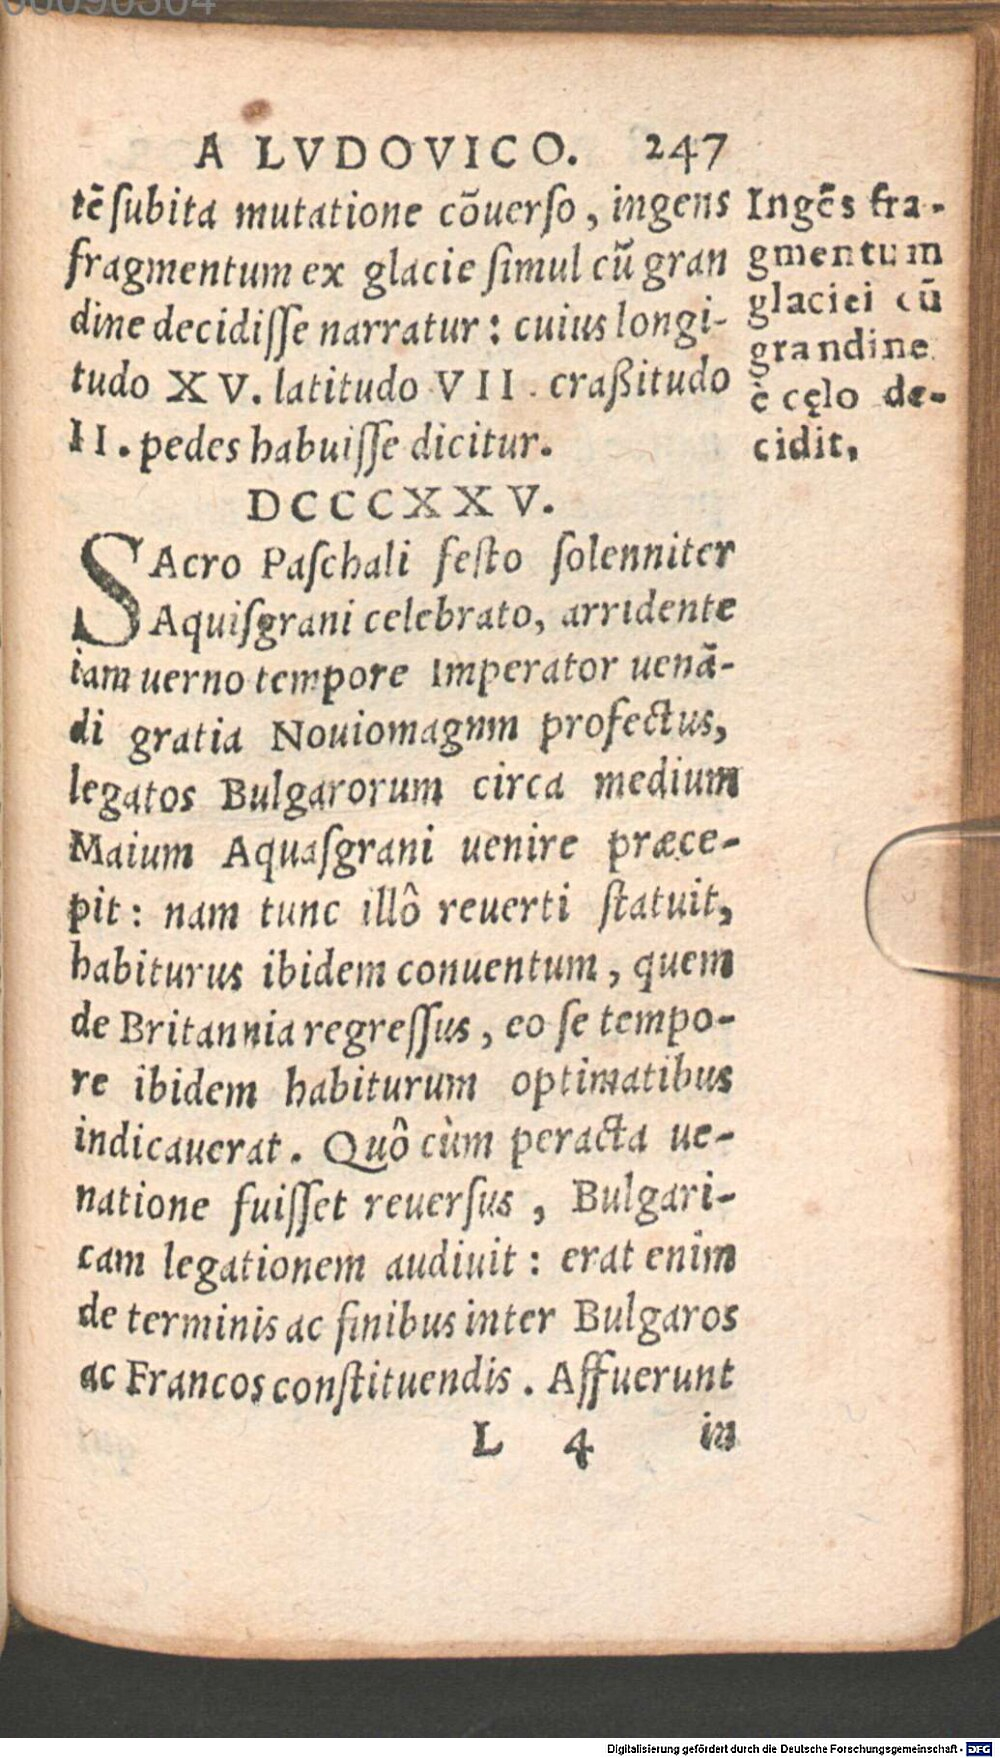 A LVDOVICO. 247
tē ſubita mutatione cōuerſo, ingens
fragmentum ex glacie ſimul cū gran
dine decidiſſe narratur: cuius longi-
tudo XV. latitudo VII. craßitudo
II. pedes habuiſſe dicitur.
Ingēs fra-
gmentum
glaciei cū
grandine
è cęlo de-
cidit.
DCCCXXV.
SAcro Paſchali feſto ſolenniter
Aquiſgrani celebrato, arridente
iam uerno tempore Imperator uenā-
di gratia Nouiomagum profectus,
legatos Bulgarorum circa medium
Maium Aquaſgrani uenire præce-
pit: nam tunc illô reuerti ſtatuit,
habiturus ibidem conuentum, quem
de Britannia regreſſus, eo ſe tempo-
re ibidem habiturum optimatibus
indicauerat. Quô cùm peracta ue-
natione fuiſſet reuerſus, Bulgari-
cam legationem audiuit: erat enim
de terminis ac finibus inter Bulgaros
ac Francos conſtituendis. Affuerunt
L 4 in
Digitalisierung gefördert durch die Deutsche Forschungsgemeinschaft - DFG